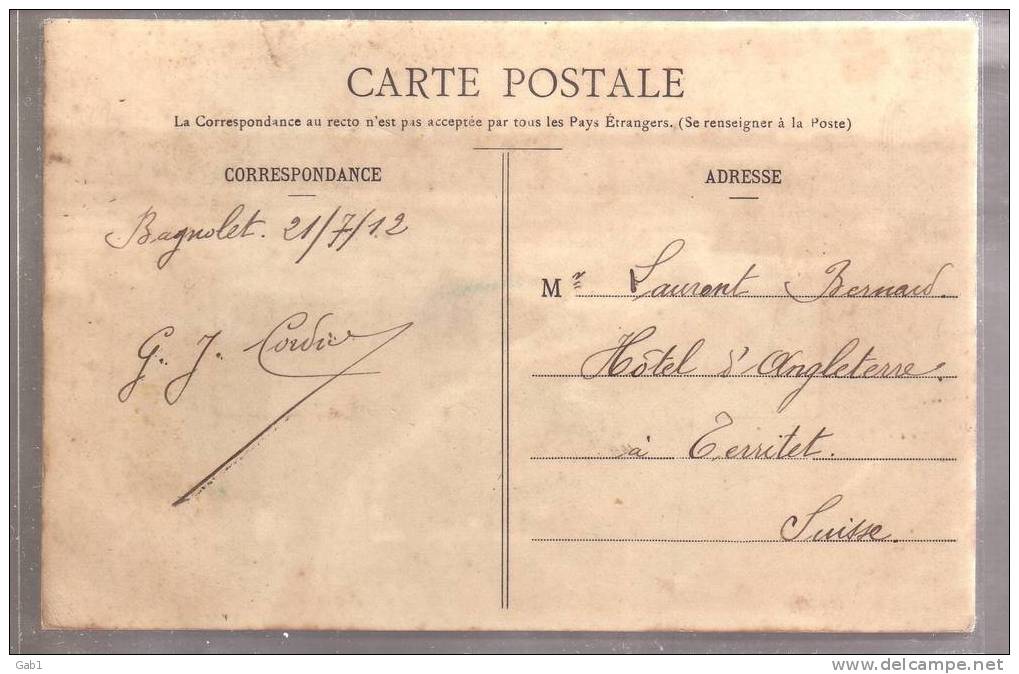 CARTE POSTALE
La Correspondance au recto n'est pas acceptée par tous les Pays Étrangers. (Se renseigner à la Poste)
CORRESPONDANCE
Bagnolet. 21/7/12
G. J.
ADRESSE
Mr Laurent Bernard.
Hôtel d'Angleterre.
à Territet.
Suisse.
Gab1
www.delcampe.net